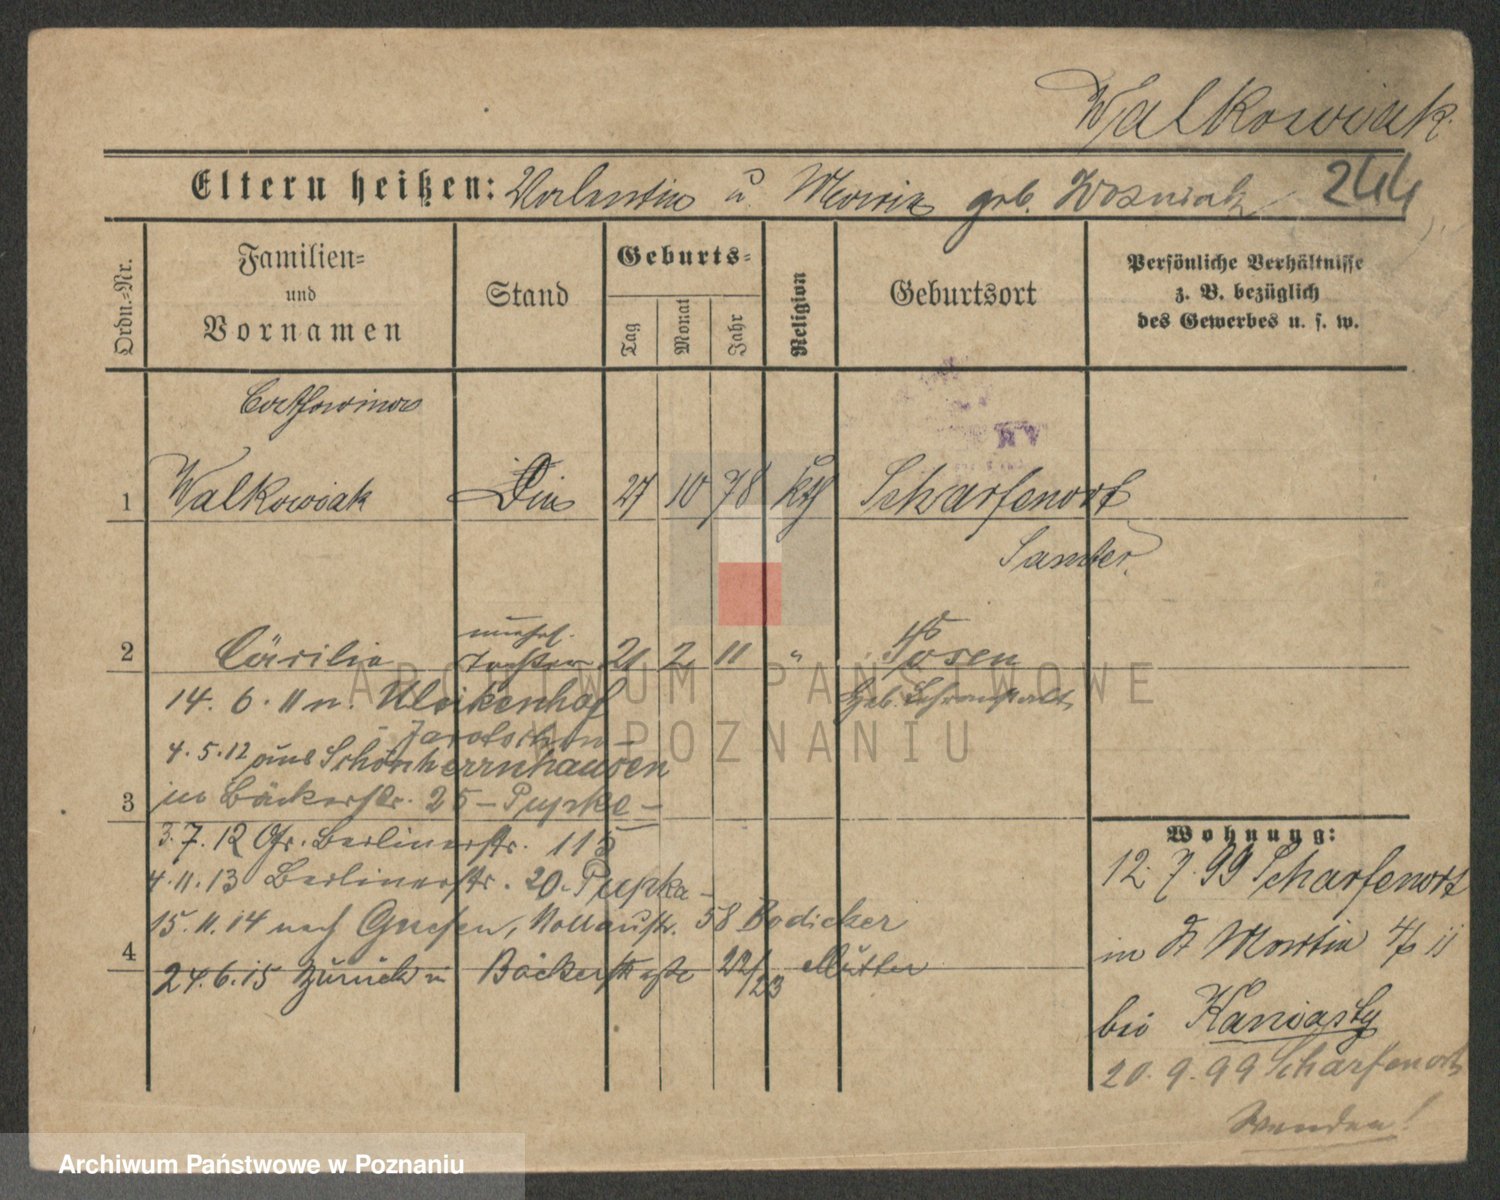 Walkowiak
Eltern heißen: Valentin u. Maria geb. Wozniak 244
Ordn.-Nr.
Familien- und Vornamen
Stand
Geburts-
Tag
Monat
Jahr
Religion
Geburtsort
Persönliche Verhältnisse z. B. bezüglich des Gewerbes u. s. w.
1 Walkowiak 27 10 78 kth Scharfenort
Samter.
2 Cäcilia unehel. Tochter 21 2 11 " Posen
14. 6. 11 n.
Jarotschin
4. 5. 12 aus Schönherrnhausen
3 in Bäckerstr. 25 - Pupke -
3. 7. 12 Gr. Berlinerstr. 115
4. 11. 13 Berlinerstr. 20. Pupka -
15. 11. 14 nach Gnesen, 58 Bodicker
4
24. 6. 15 zurück n Bäckerstraße 22/23 Mutter
Wohnung:
12. 7. 99 Scharfenort
in St Martin 46 II
bei Kaniasty
20. 9. 99 Scharfenort
Wenden!
ARCHIWUM PAŃSTWOWE
W POZNANIU
Archiwum Państwowe w Poznaniu